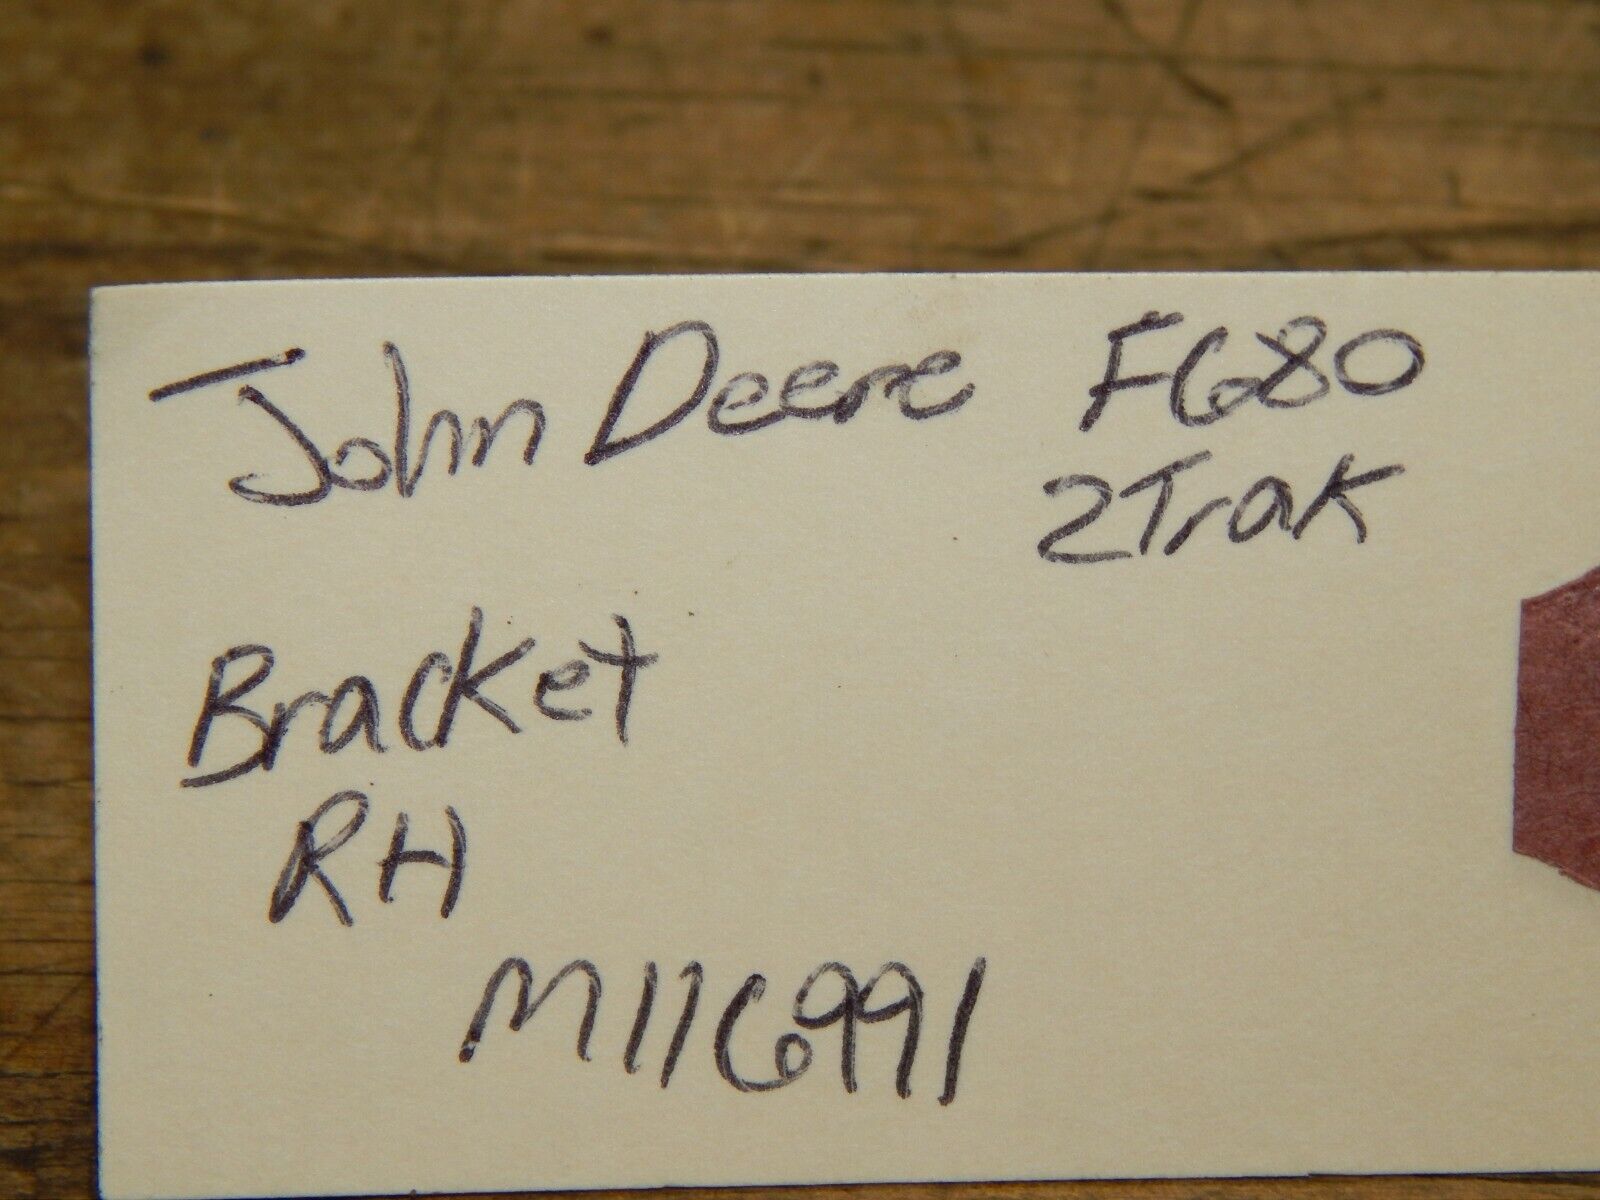 John Deere F680
2Trak
Bracket
RH
M116991